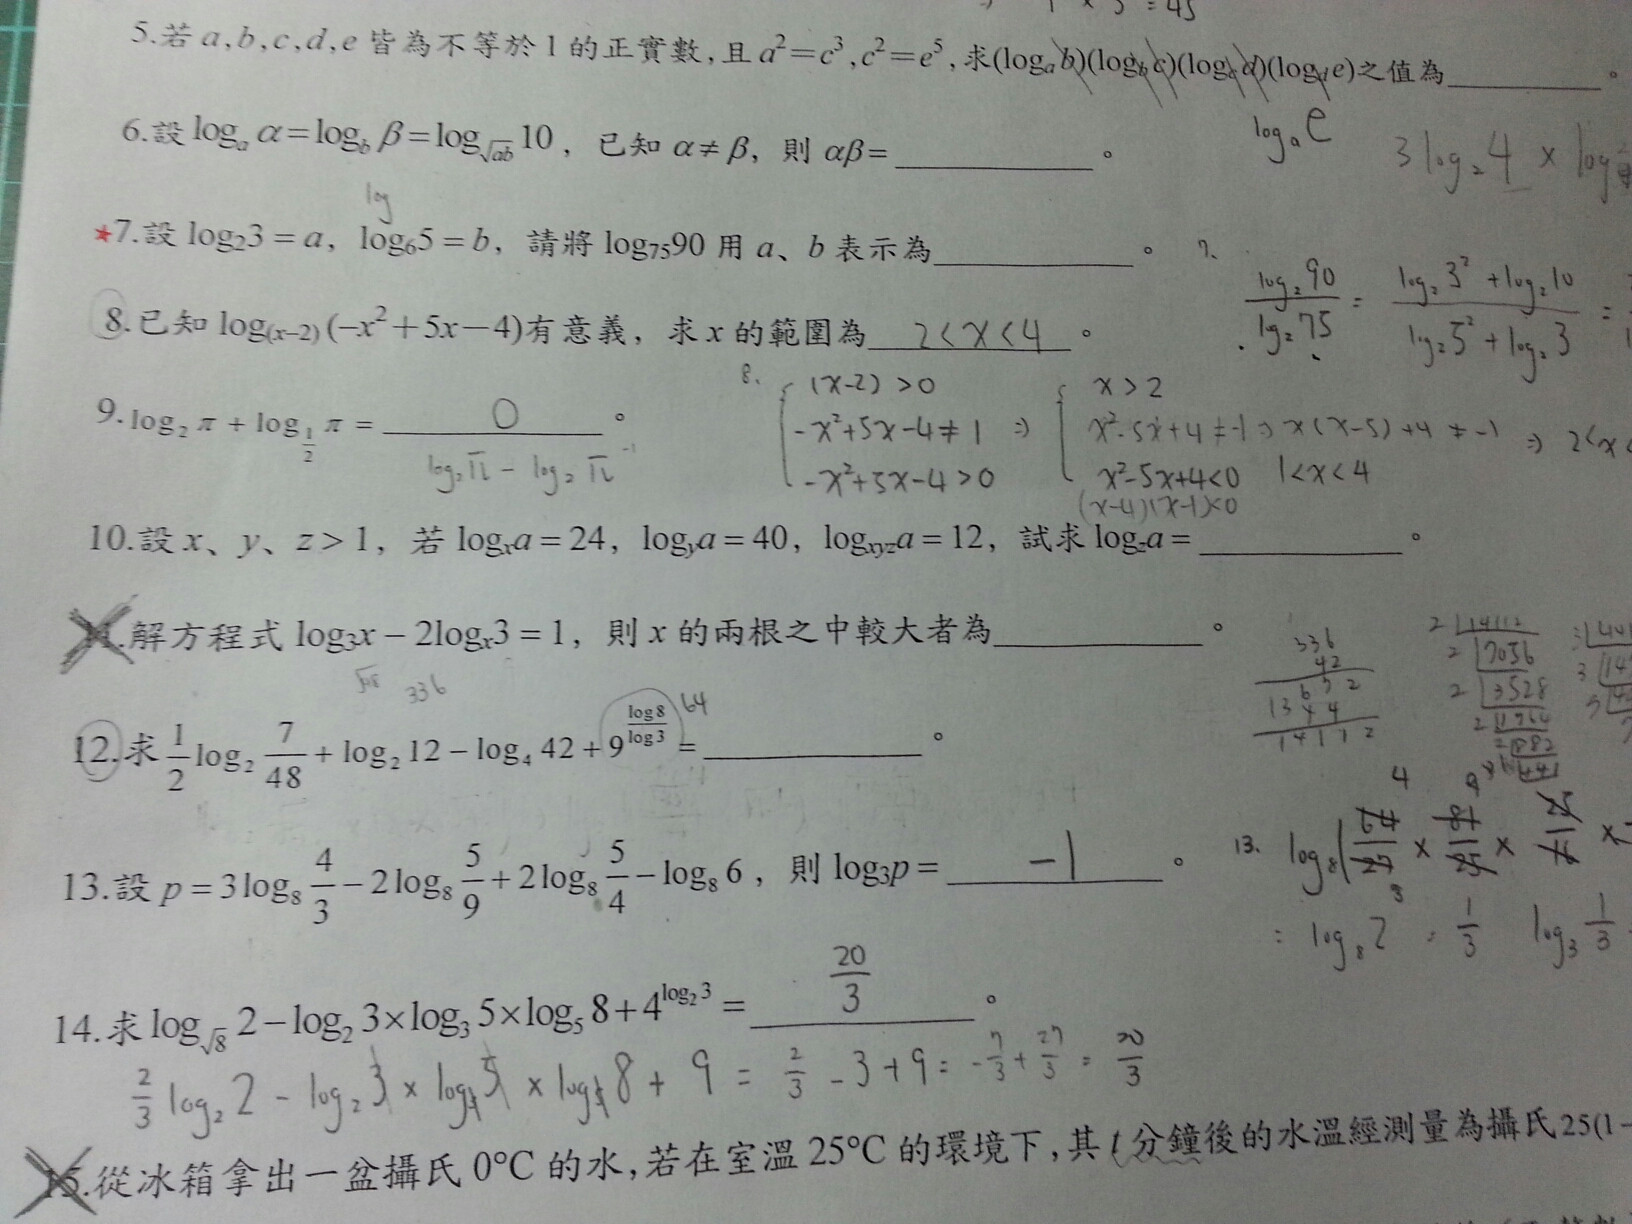 = 45
5.若 a,b,c,d,e 皆為不等於 1 的正實數,且 a²=c³,c²=e⁵,求(logₐb)(log_b c)(log_c d)(log_d e)之值為________。
logₐ e
3 log₂ 4 × log
6.設 logₐ α=log_b β=log_√ab 10，已知 α≠β，則 αβ=________。
log
★7.設 log₂3 = a，log₆5 = b，請將 log₇₅90 用 a、b 表示為________。
7. log₂ 90 / log₂ 75 = (log₂ 3² + log₂ 10) / (log₂ 5² + log₂ 3) =
8.已知 log₍ₓ₋₂₎(−x²+5x−4)有意義，求 x 的範圍為 2<x<4 。
8. { (x-2) >0 { x > 2
-x²+5x-4≠1 ⇒ x²-5x+4≠-1 ⇒ x(x-5)+4≠-1 ⇒ 2<x<
-x²+5x-4>0 x²-5x+4<0 1<x<4
(x-4)(x-1)<0
9.log₂ π + log_{1/2} π = 0 。
log₂π - log₂ π⁻¹
10.設 x、y、z > 1，若 logₓa = 24，log_y a = 40，log_xyz a = 12，試求 log_z a = ________。
11.解方程式 log₃x − 2logₓ3 = 1，則 x 的兩根之中較大者為________。
336
336
42
672
1344
14112
2 14112
2 7056
2 3528
2 1764
2 882
441
12.求 1/2 log₂ 7/48 + log₂ 12 − log₄ 42 + 9^(log8/log3) = ________。
64
13.設 p = 3log₈ 4/3 − 2log₈ 5/9 + 2log₈ 5/4 − log₈ 6，則 log₃p = -1 。
13. log₈(64/27 × 81/25 × 25/16 ×
4 9 3
= log₈ 2 = 1/3 log₃ 1/3
14.求 log_√8 2−log₂ 3×log₃ 5×log₅ 8+4^(log₂3) = 20/3 。
2/3 log₂ 2 - log₂ 3 × log₃ 5 × log₅ 8 + 9 = 2/3 - 3 + 9 = -7/3 + 27/3 = 20/3
15.從冰箱拿出一盆攝氏 0°C 的水,若在室溫 25°C 的環境下,其 t 分鐘後的水溫經測量為攝氏 25(1−